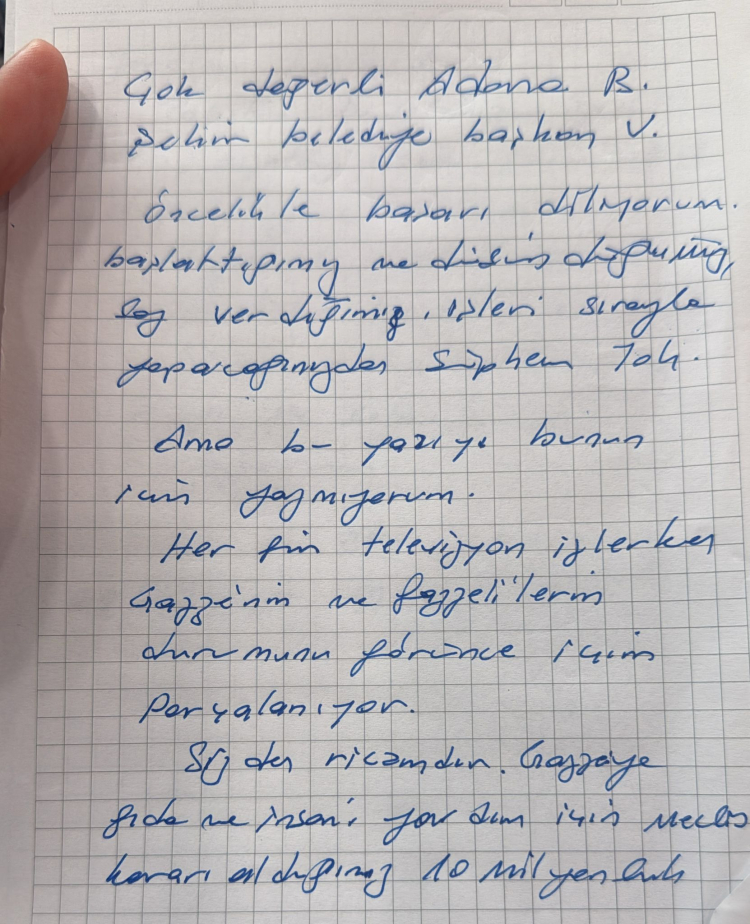 Çok değerli Adana B.
Şehir belediye başkan V.
Öncelikle başarı diliyorum.
başlattığınız ve düşündüğünüz,
söz verdiğiniz, işleri sırayla
yapacağınızdan şüphem Yok.
Ama bu yazıyı bunun
için yazmıyorum.
Her gün televizyon izlerken
Gazze'nin ve gazzeli'lerin
durumunu görünce içim
parçalanıyor.
Sizden ricamdır. Gazzeye
gıda ve insani yardım için Meclis
kararı aldığınız 10 milyonluk